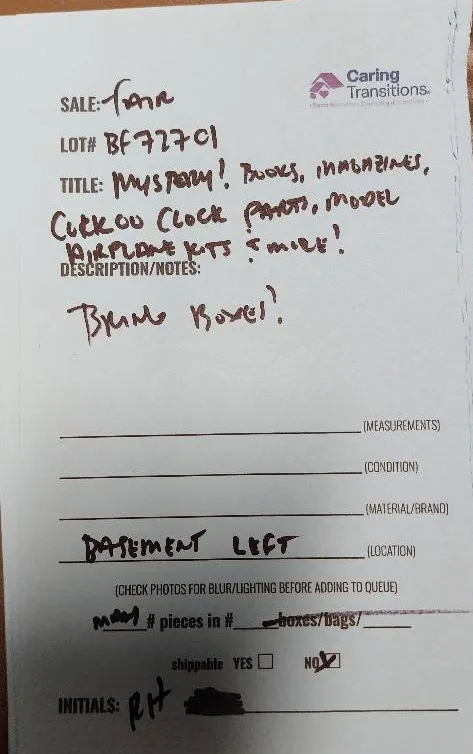 Caring
Transitions
SALE: FAIR
LOT# BF72701
TITLE: MYSTERY! BOOKS, MAGAZINES,
CUCKOO CLOCK PARTS, MODEL
AIRPLANE KITS & MORE!
DESCRIPTION/NOTES:
BRING BOXES!
(MEASUREMENTS)
(CONDITION)
(MATERIAL/BRAND)
BASEMENT LEFT (LOCATION)
(CHECK PHOTOS FOR BLUR/LIGHTING BEFORE ADDING TO QUEUE)
many # pieces in # boxes/bags/
shippable YES NO
INITIALS: RH